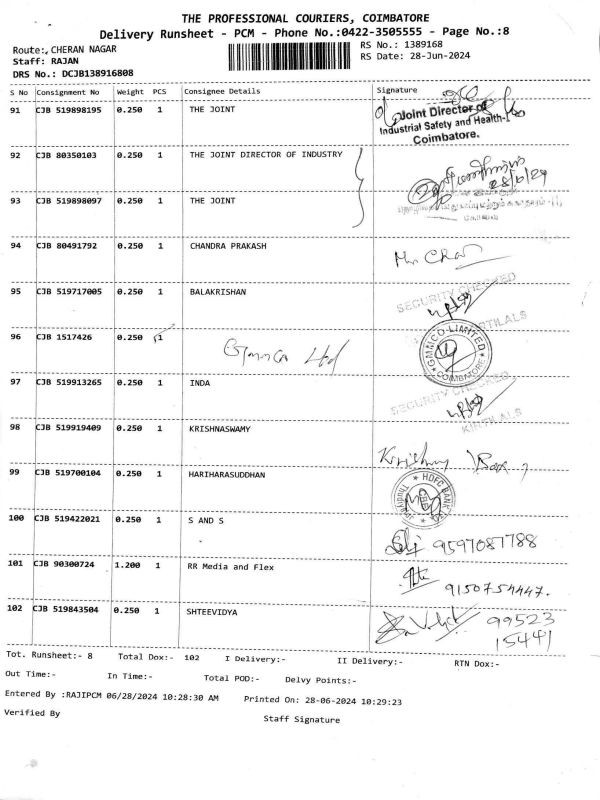 THE PROFESSIONAL COURIERS, COIMBATORE
Delivery Runsheet - PCM - Phone No.:0422-3505555 - Page No.:8
Route:, CHERAN NAGAR RS No.: 1389168
Staff: RAJAN RS Date: 28-Jun-2024
DRS No.: DCJB138916808
S No Consignment No Weight PCS Consignee Details Signature
91 CJB 519898195 0.250 1 THE JOINT
Joint Director of
Industrial Safety and Health-I
Coimbatore.
92 CJB 80350103 0.250 1 THE JOINT DIRECTOR OF INDUSTRY
93 CJB 519898097 0.250 1 THE JOINT
94 CJB 80491792 0.250 1 CHANDRA PRAKASH
95 CJB 519717005 0.250 1 BALAKRISHAN SECURITY CHECKED
96 CJB 1517426 0.250 1 Gmmco Ltd GMMCO LIMITED COIMBATORE
97 CJB 519913265 0.250 1 INDA SECURITY CHECKED
KIRTILALS
98 CJB 519919409 0.250 1 KRISHNASWAMY
99 CJB 519700104 0.250 1 HARIHARASUDDHAN HDFC BANK
100 CJB 519422021 0.250 1 S AND S 9597087788
101 CJB 90300724 1.200 1 RR Media and Flex 9150754447.
102 CJB 519843504 0.250 1 SHTEEVIDYA 99523
15441
Tot. Runsheet:- 8 Total Dox:- 102 I Delivery:- II Delivery:- RTN Dox:-
Out Time:- In Time:- Total POD:- Delvy Points:-
Entered By :RAJIPCM 06/28/2024 10:28:30 AM Printed On: 28-06-2024 10:29:23
Verified By Staff Signature